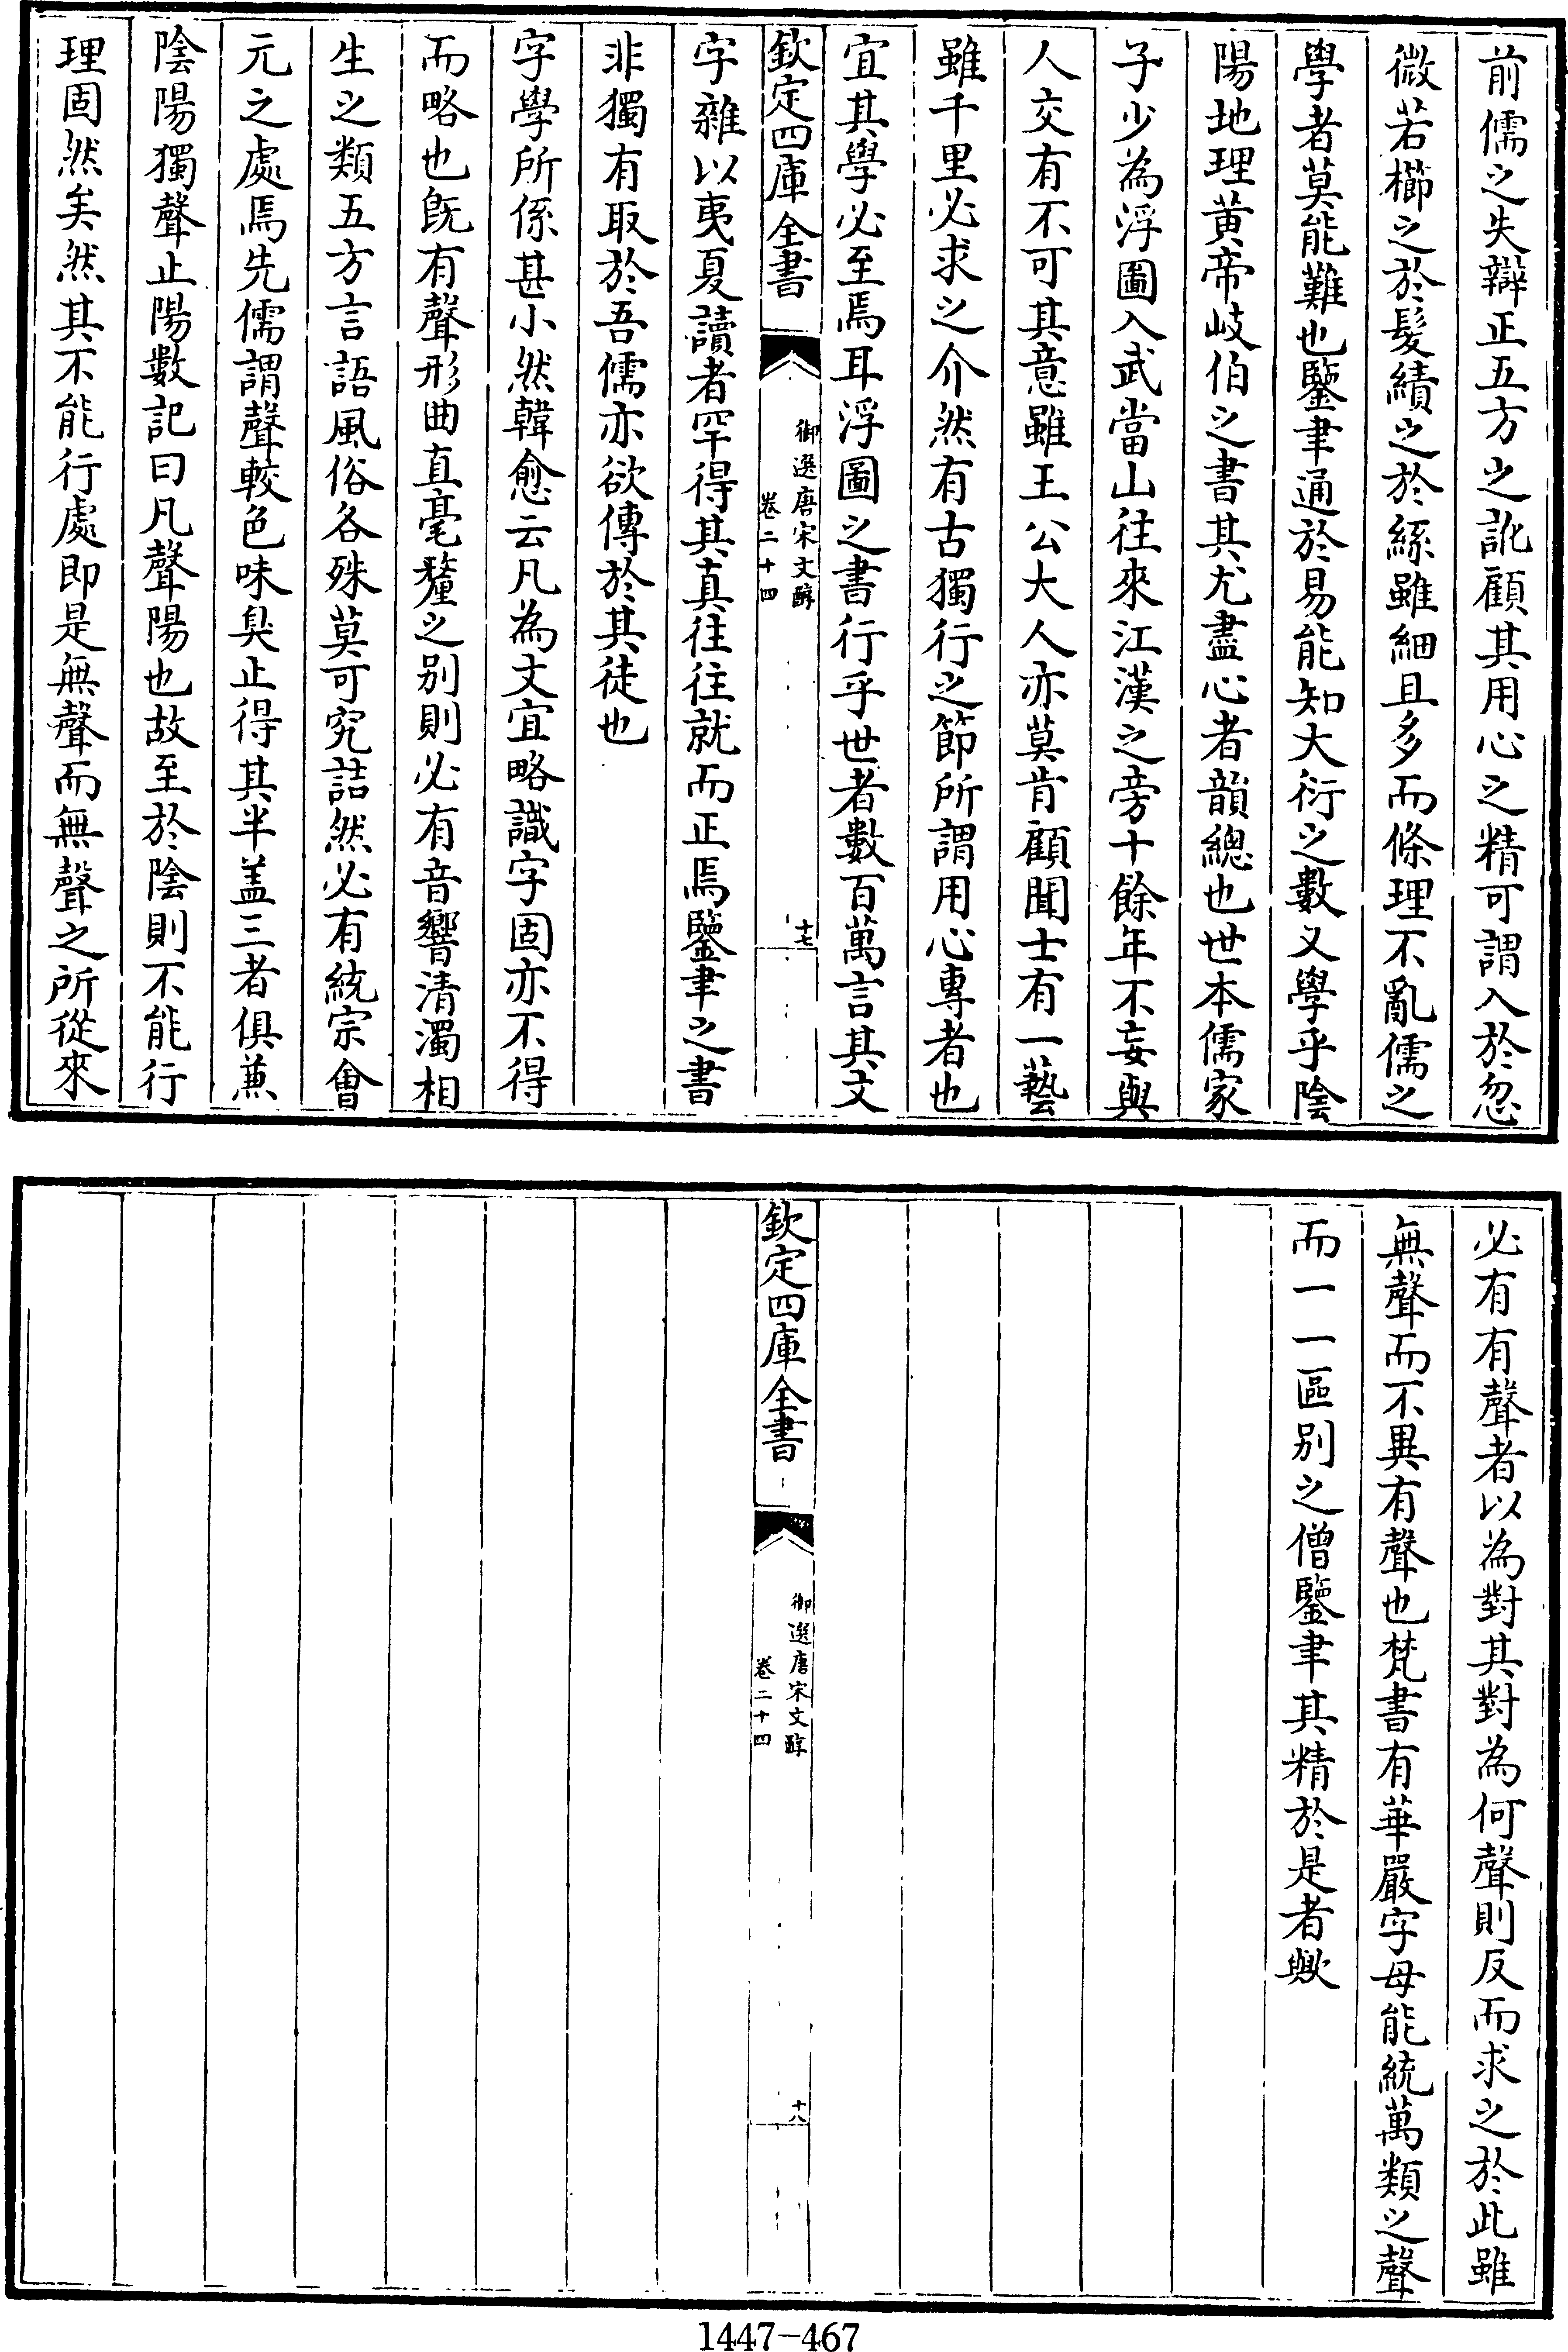 前儒之失辯正五方之訛顧其用心之精可謂入於忽
微若櫛之於髮績之於絲雖細且多而條理不亂儒之
學者莫能難也鑒聿通於易能知大衍之數又學乎陰
陽地理黄帝岐伯之書其尤盡心者韻總也世本儒家
子少為浮圖入武當山往來江漢之旁十餘年不妄與
人交有不可其意雖王公大人亦莫肯顧聞士有一藝
雖千里必求之介然有古獨行之節所謂用心專者也
宜其學必至焉耳浮圖之書行乎世者數百萬言其文
欽定四庫全書
御選唐宋文醇
卷二十四
十七
字雜以夷夏讀者罕得其真往往就而正焉鑒聿之書
非獨有取於吾儒亦欲傳於其徒也
字學所係甚小然韓愈云凡為文宜略識字固亦不得
而略也旣有聲形曲直毫釐之别則必有音響清濁相
生之類五方言語風俗各殊莫可究詰然必有統宗會
元之處焉先儒謂聲較色味臭止得其半盖三者俱兼
陰陽獨聲止陽數記曰凡聲陽也故至於陰則不能行
理固然矣然其不能行處即是無聲而無聲之所從來
必有有聲者以為對其對為何聲則反而求之於此雖
無聲而不異有聲也梵書有華嚴字母能統萬類之聲
而一一區别之僧鑒聿其精於是者歟
欽定四庫全書
御選唐宋文醇
卷二十四
十八
1447-467